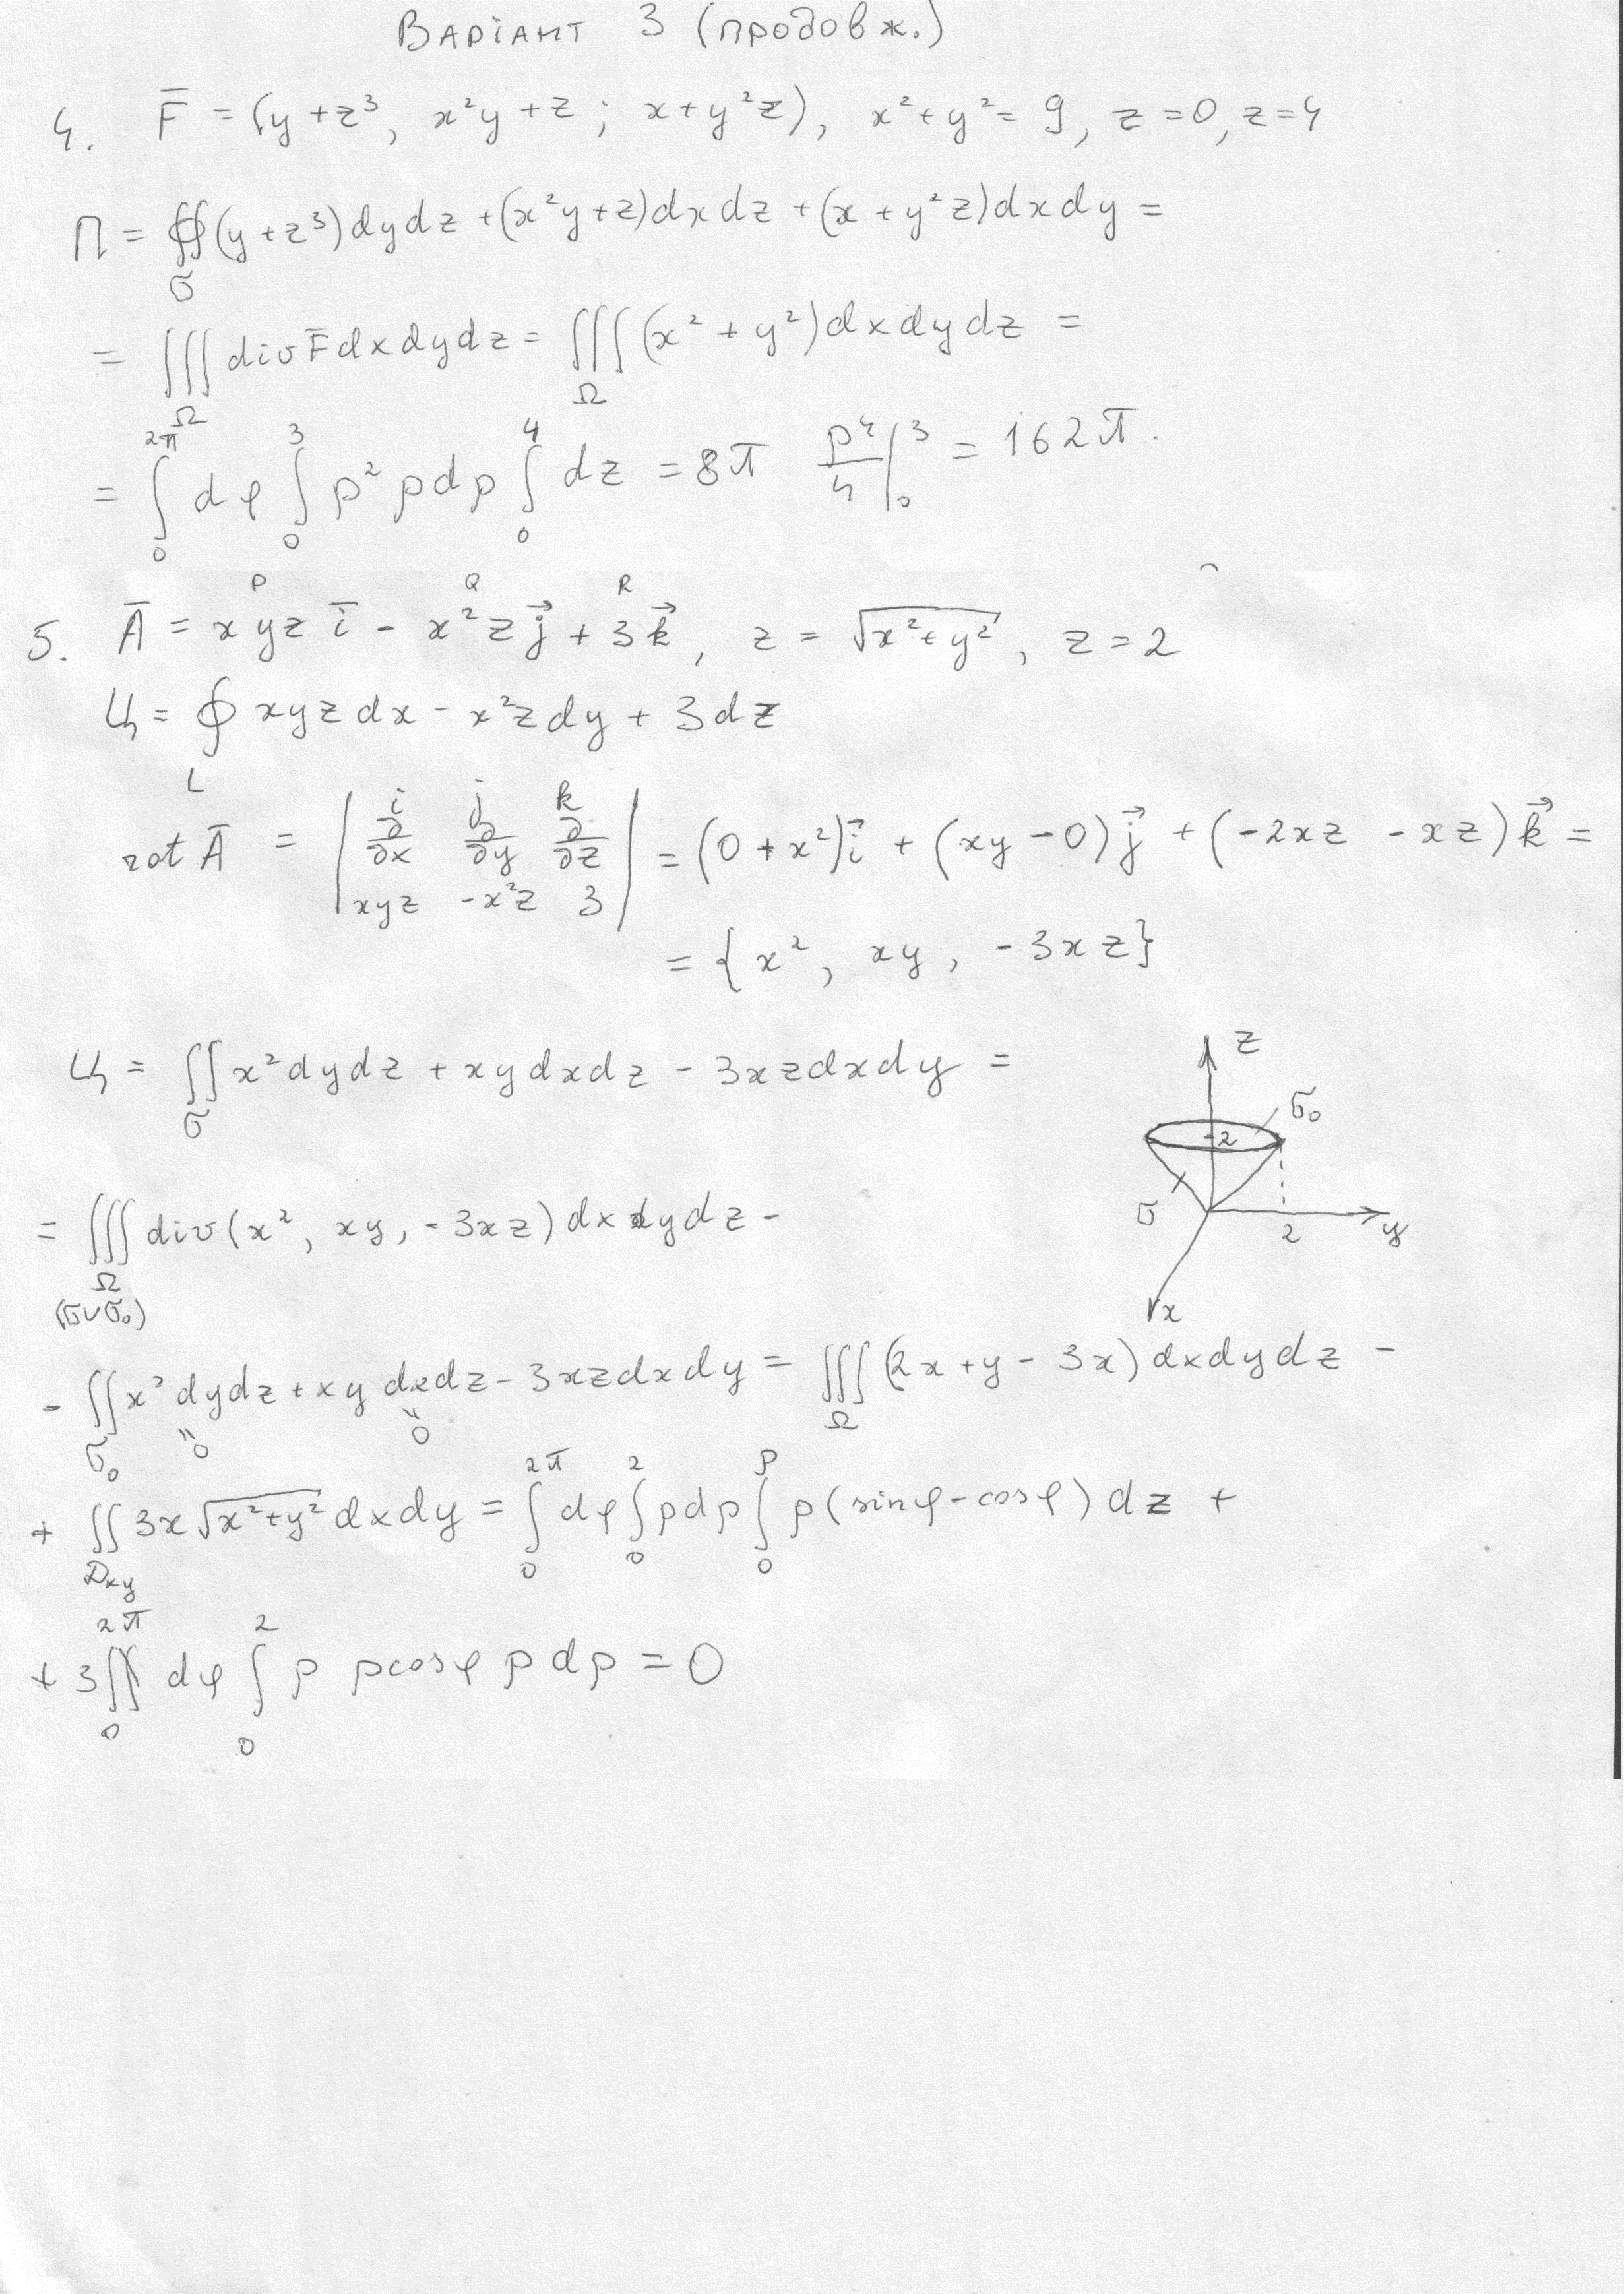 Варіант 3 (продовж.)
4. F̅ = (y + z³, x²y + z ; x + y²z), x² + y² = 9, z = 0, z = 4
П = ∯_σ (y + z³)dydz + (x²y + z)dxdz + (x + y²z)dxdy =
= ∭_Ω div F̅ dxdydz = ∭_Ω (x² + y²)dxdydz =
= ∫₀^{2π} dφ ∫₀³ ρ² ρdρ ∫₀⁴ dz = 8π ρ⁴/4 |₀³ = 162π.
P Q R
5. A̅ = xyz i̅ - x²z j⃗ + 3k⃗, z = √(x² + y²), z = 2
Ц = ∮_L xyzdx - x²zdy + 3dz
rot A̅ = | i j k ; ∂/∂x ∂/∂y ∂/∂z ; xyz -x²z 3 | = (0 + x²)i⃗ + (xy - 0)j⃗ + (-2xz - xz)k⃗ =
= {x², xy, -3xz}
Ц = ∬_σ x²dydz + xydxdz - 3xzdxdy =
z
σ₀
2
σ
2
y
x
= ∭_Ω (σ∪σ₀) div(x², xy, -3xz)dxdydz -
- ∬_{σ₀} x²dydz + xydxdz - 3xzdxdy = ∭_Ω (2x + y - 3x)dxdydz -
"0 "0
+ ∬_{D_xy} 3x√(x² + y²)dxdy = ∫₀^{2π} dφ ∫₀² ρdρ ∫₀^ρ ρ(sinφ - cosφ)dz +
+ 3∫₀^{2π} dφ ∫₀² ρ ρcosφ ρdρ = 0